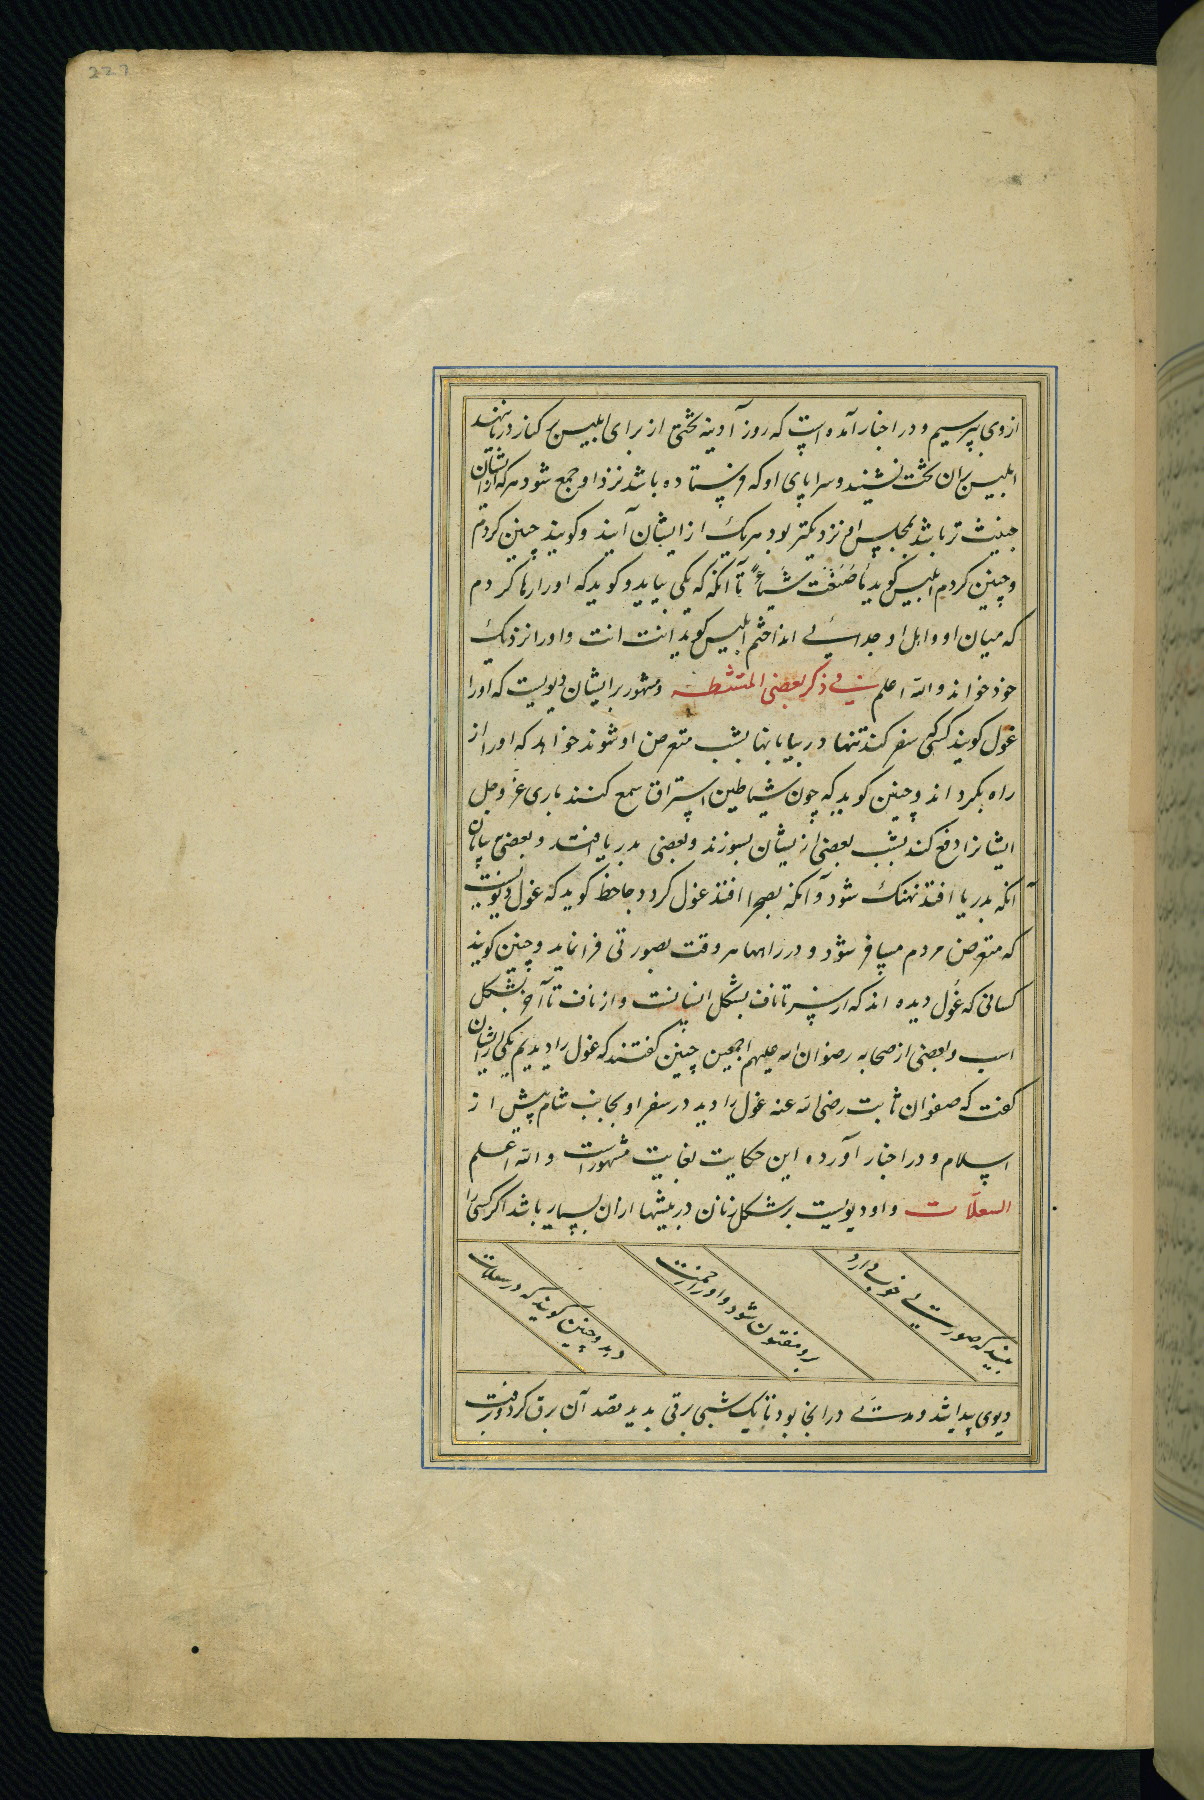 227
ازوی بپرسیم و در اخبار آمده است که روز آدینه تختی از برای ابلیس بر کنار دریا نهند
ابلیس بران تخت نشیند و سراپای او که فرستاده باشد نزد او جمع شود هر که از ایشان
خبیث تر باشد بمجلس او نزدیکتر بود هر یک از ایشان آیند و کویند چنین کردم
و چنین کردم ابلیس کوید ما صنعت شیأ تا آنکه که یکی بیاید و کوید که اورا رها کردم
که میان او و اهل او جدائی انداختم ابلیس کوید انت انت و اورا نزدیک
خود خواند والله اعلم فی ذکر بعضی المتشیطنه و مشهور بر ایشان دیویست که اورا
غول کویند کسی سفر کند تنها در بیابانها بشب متعرض او شوند خواهد که اورا از
راه بکرداند و چنین کوید که چون شیاطین استراق سمع کنند باری عز و جل
ایشانرا دفع کند بشهب بعضی از یشان بسوزند و بعضی بدریا افتند و بعضی بیابان
آنکه بدریا افتد نهنک شود و آنکه بصحرا افتد غول کردد جاحظ کوید که غول دیویست
که متعرض مردم مسافر شود و در راهها هر وقت بصورتی فرا نماید و چنین کویند
کسانی که غول دیده اند که از سر تا ناف بشکل انسانست و از ناف تا آخر بشکل
اسب و بعضی از صحابه رضوان الله علیهم اجمعین چنین کفتند که غول را دیدیم یکی از ایشان
کفت که صفوان ثابت رضی الله عنه غول را دید در سفر او بجانب شام پیش از
اسلام و در اخبار آورده این حکایت بغایت مشهور است و الله اعلم
السعلات و او دیویست بر شکل زنان در بیشها ازان بسیار باشد اکر کسی را
بیند که صورت خوب دارد
برو مفتون شود و اورا
دید و چنین کویند که در سعلات
دیوی پیدا شد و مدتی درانجا بود تا یک شبی برقی بدید قصد آن برق کرد و برفت